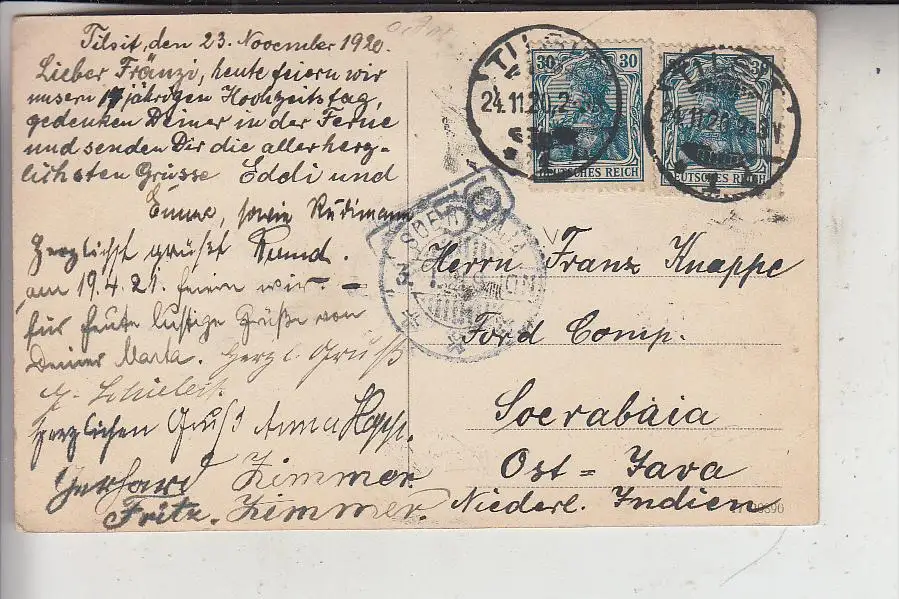 Tilsit, den 23. November 1920.
Lieber Fränzi, heute feiern wir
unsern 17 jährigen Hochzeitstag,
gedenken Deiner in der Ferne
und senden Dir die allerherz-
lichsten Grüsse Eddi und
sowie
Herzlichst grüßt
am 19.4.21. feiern wir. –
für heute lustige Grüße von
Deiner Marta. Herzl. Gruß
herzlichen Gruß Anna
Gerhard Zimmer
Fritz. Zimmer.
30 30
DEUTSCHES REICH
30
DEUTSCHES REICH
TILSIT
24.11.20.2-
TILSIT
24.11.20.2-3N
1
SOERABAJA
3.
Herrn Franz Knappe
Ford Comp.
Soerabaia
Ost = Java
Niederl. Indien